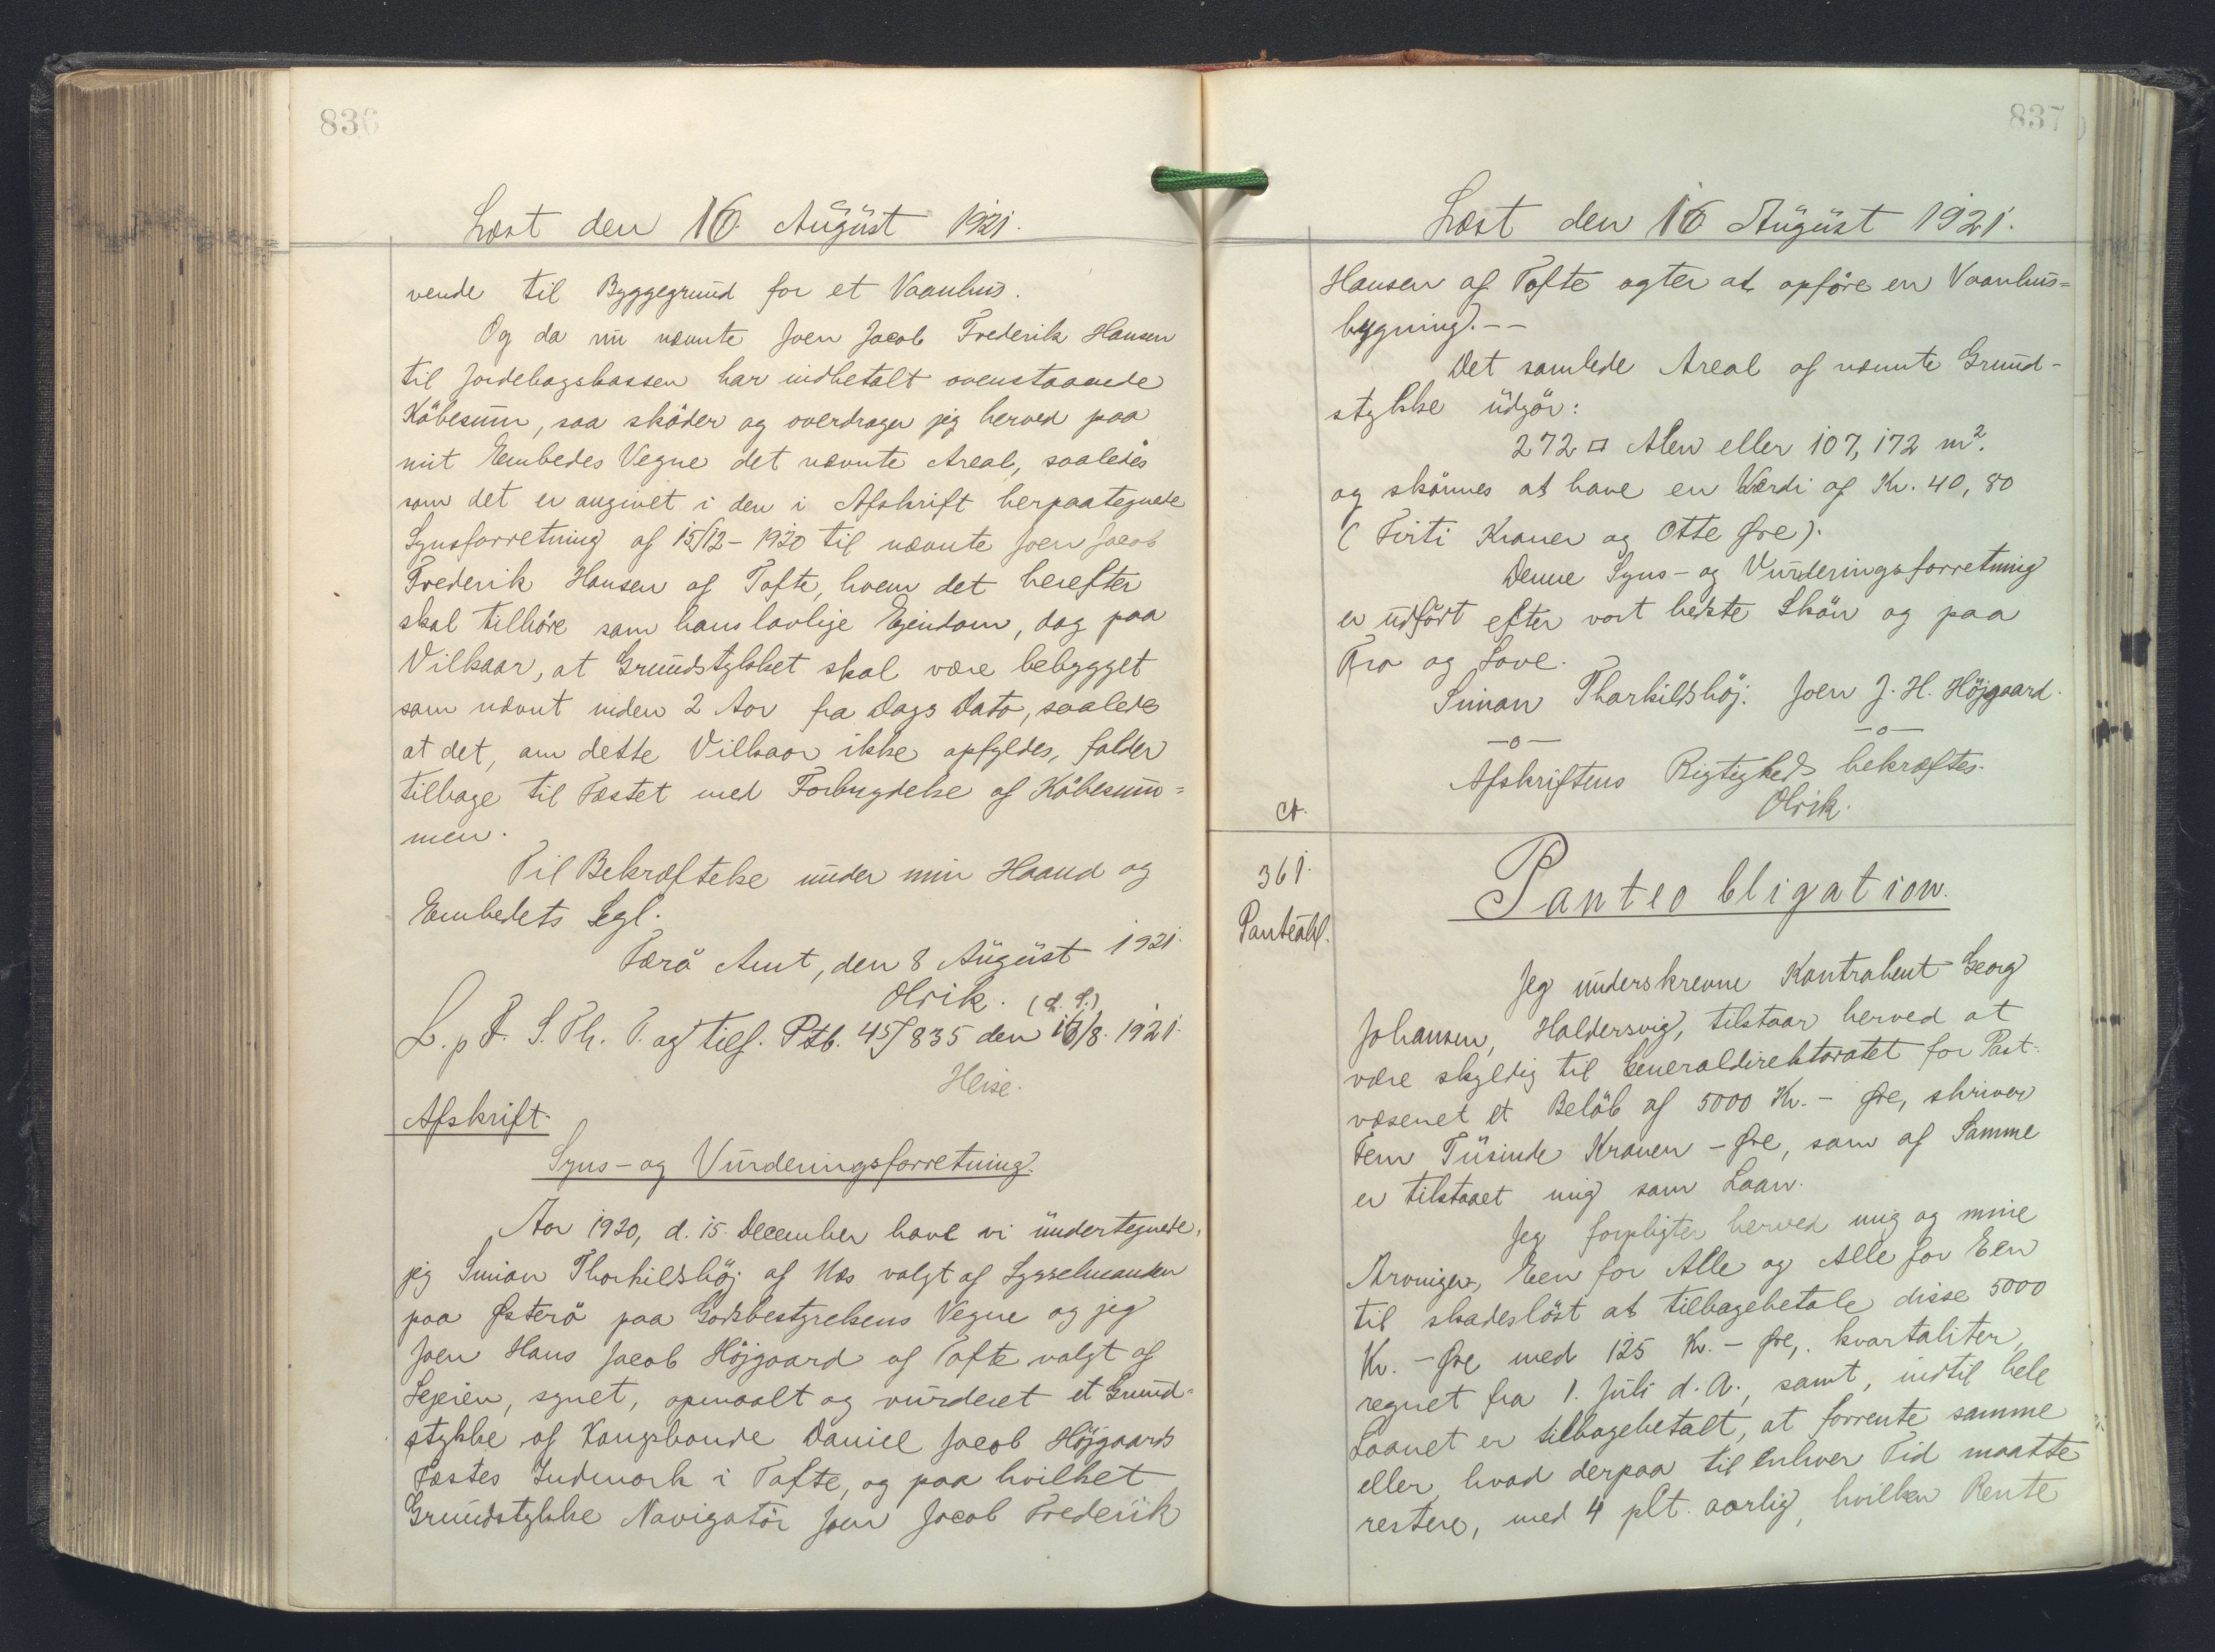 836
Læst den 16. August 1921.
vende til Byggegrund for et Vaanhus.
Og da nu nævnte Joen Jacob Frederik Hansen
til Jordebogskassen har indbetalt ovenstaaende
Købesum, saa skøder og overdrager jeg herved paa
mit Embedes Vegne det nævnte Areal, saaledes
som det er angivet i den i Afskrift herpaategnede
Synsforretning af 15/12-1920 til nævnte Joen Jacob
Frederik Hansen af Tofte, hvem det herefter
skal tilhøre som hans lovlige Ejendom, dog paa
Vilkaar, at Grundstykket skal være bebygget
som nævnt inden 2 Aar fra Dags Dato, saaledes
at det, om dette Vilkaar ikke opfyldes, falder
tilbage til Fæstet med Forbrydelse af Købesum=
men.
Til Bekræftelse under min Haand og
Embedets Segl.
Færø Amt, den 8 August 1921.
Olrik. (L. S.)
L. p F. S. Th. P. og tilf. Ptb. 45/835 den 16/8. 1921.
Heise.
Afskrift.
Syns- og Vurderingsforretning.
Aar 1920, d. 15. December have vi undertegnede,
jeg Simon Thorkildshøj af Næs valgt af Sysselmanden
paa Østerø paa Godsbestyrelsens Vegne og jeg
Joen Hans Jacob Højgaard af Tofte valgt af
Lejeren, synet, opmaalt og vurderet et Grund=
stykke af Kongsbonde Daniel Jacob Højgaards
Fæstes Indmark i Tofte, og paa hvilket
Grundstykke Navigatør Joen Jacob Frederik
837
Læst den 16 August 1921.
Hansen af Tofte agter at opføre en Vaanhus=
bygning. --
Det samlede Areal af nævnte Grund-
stykke udgør:
272 □ Alen eller 107,172 m².
og skønnes at have en Værdi af Kr. 40,80
( Firti Kroner og Otte Øre).
Denne Syns- og Vurderingsforretning
er udført efter vort bedste Skøn og paa
Tro og Love.
Simon Thorkildshøj. Joen J. H. Højgaard.
-o- -o-
Afskriftens Rigtighed bekræftes.
Olrik.
Ct.
361.
Panteobl.
Panteobligation.
Jeg underskrevne Kontrahent Georg
Johansen, Haldersvig, tilstaar herved at
være skyldig til Generaldirektoratet for Post-
væsenet et Beløb af 5000 Kr. - Øre, skriver
Fem Tusinde Kroner - Øre, som af Samme
er tilstaaet mig som Laan.
Jeg forpligter herved mig og mine
Arvinger, Een for Alle og Alle for Een
til skadesløst at tilbagebetale disse 5000
Kr. - Øre med 125 Kr. - Øre, kvartaliter,
regnet fra 1. Juli d. A., samt, indtil hele
Laanet er tilbagebetalt, at forrente samme
eller, hvad derpaa til Enhver Tid maatte
restere, med 4 pCt. aarlig, hvilken Rente